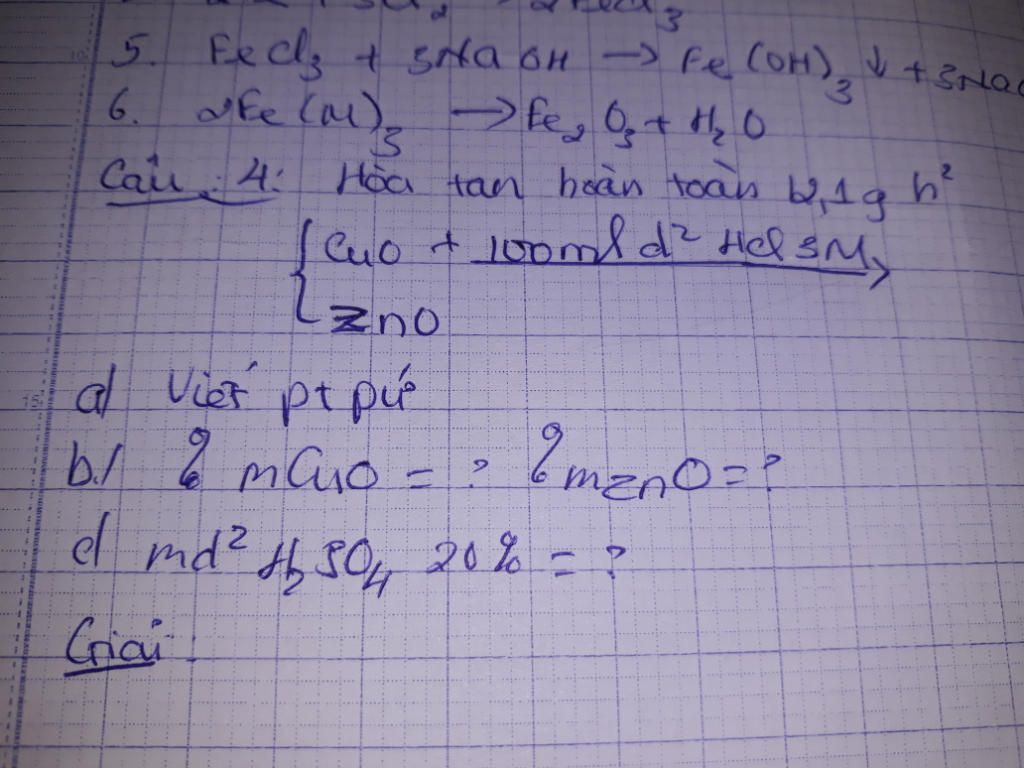 5. FeCl3 + 3NaOH → Fe(OH)3 ↓ + 3NaC
6. 2Fe(OH)3 → Fe2O3 + H2O
Câu : 4: Hòa tan hoàn toàn 12,1g h²
{ CuO + 100ml d² HCl 3M →
ZnO
a) Viết pt pứ
b.) % mCuO = ? % mZnO = ?
c) md² H2SO4 20% = ?
Giải: